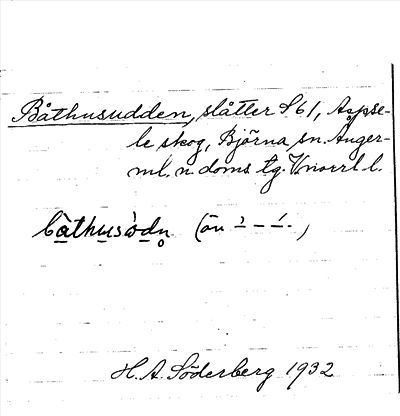 Båthusudden, slåtter S61, Aspse-
le skog, Björna sn. Ånger-
ml. n. doms tg. V.norrl l.
bàthusòdn̥ (än – – –)
H. A. Söderberg 1932